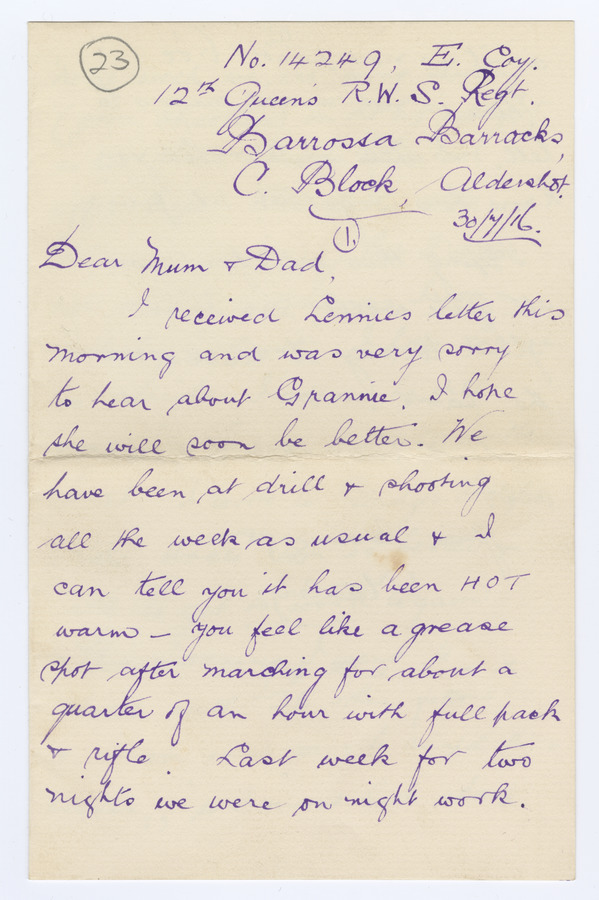 23
No. 14249, E. Coy.
12th Queen's R.W.S. Regt.
Barrossa Barracks,
C. Block, Aldershot.
30/7/16.
1.
Dear Mum & Dad,
I received Lennies letter this
morning and was very sorry
to hear about Grannie. I hope
she will soon be better. We
have been at drill & shooting
all the week as usual & I
can tell you it has been HOT
warm - you feel like a grease
spot after marching for about a
quarter of an hour with full pack
& rifle. Last week for two
nights we were on night work.